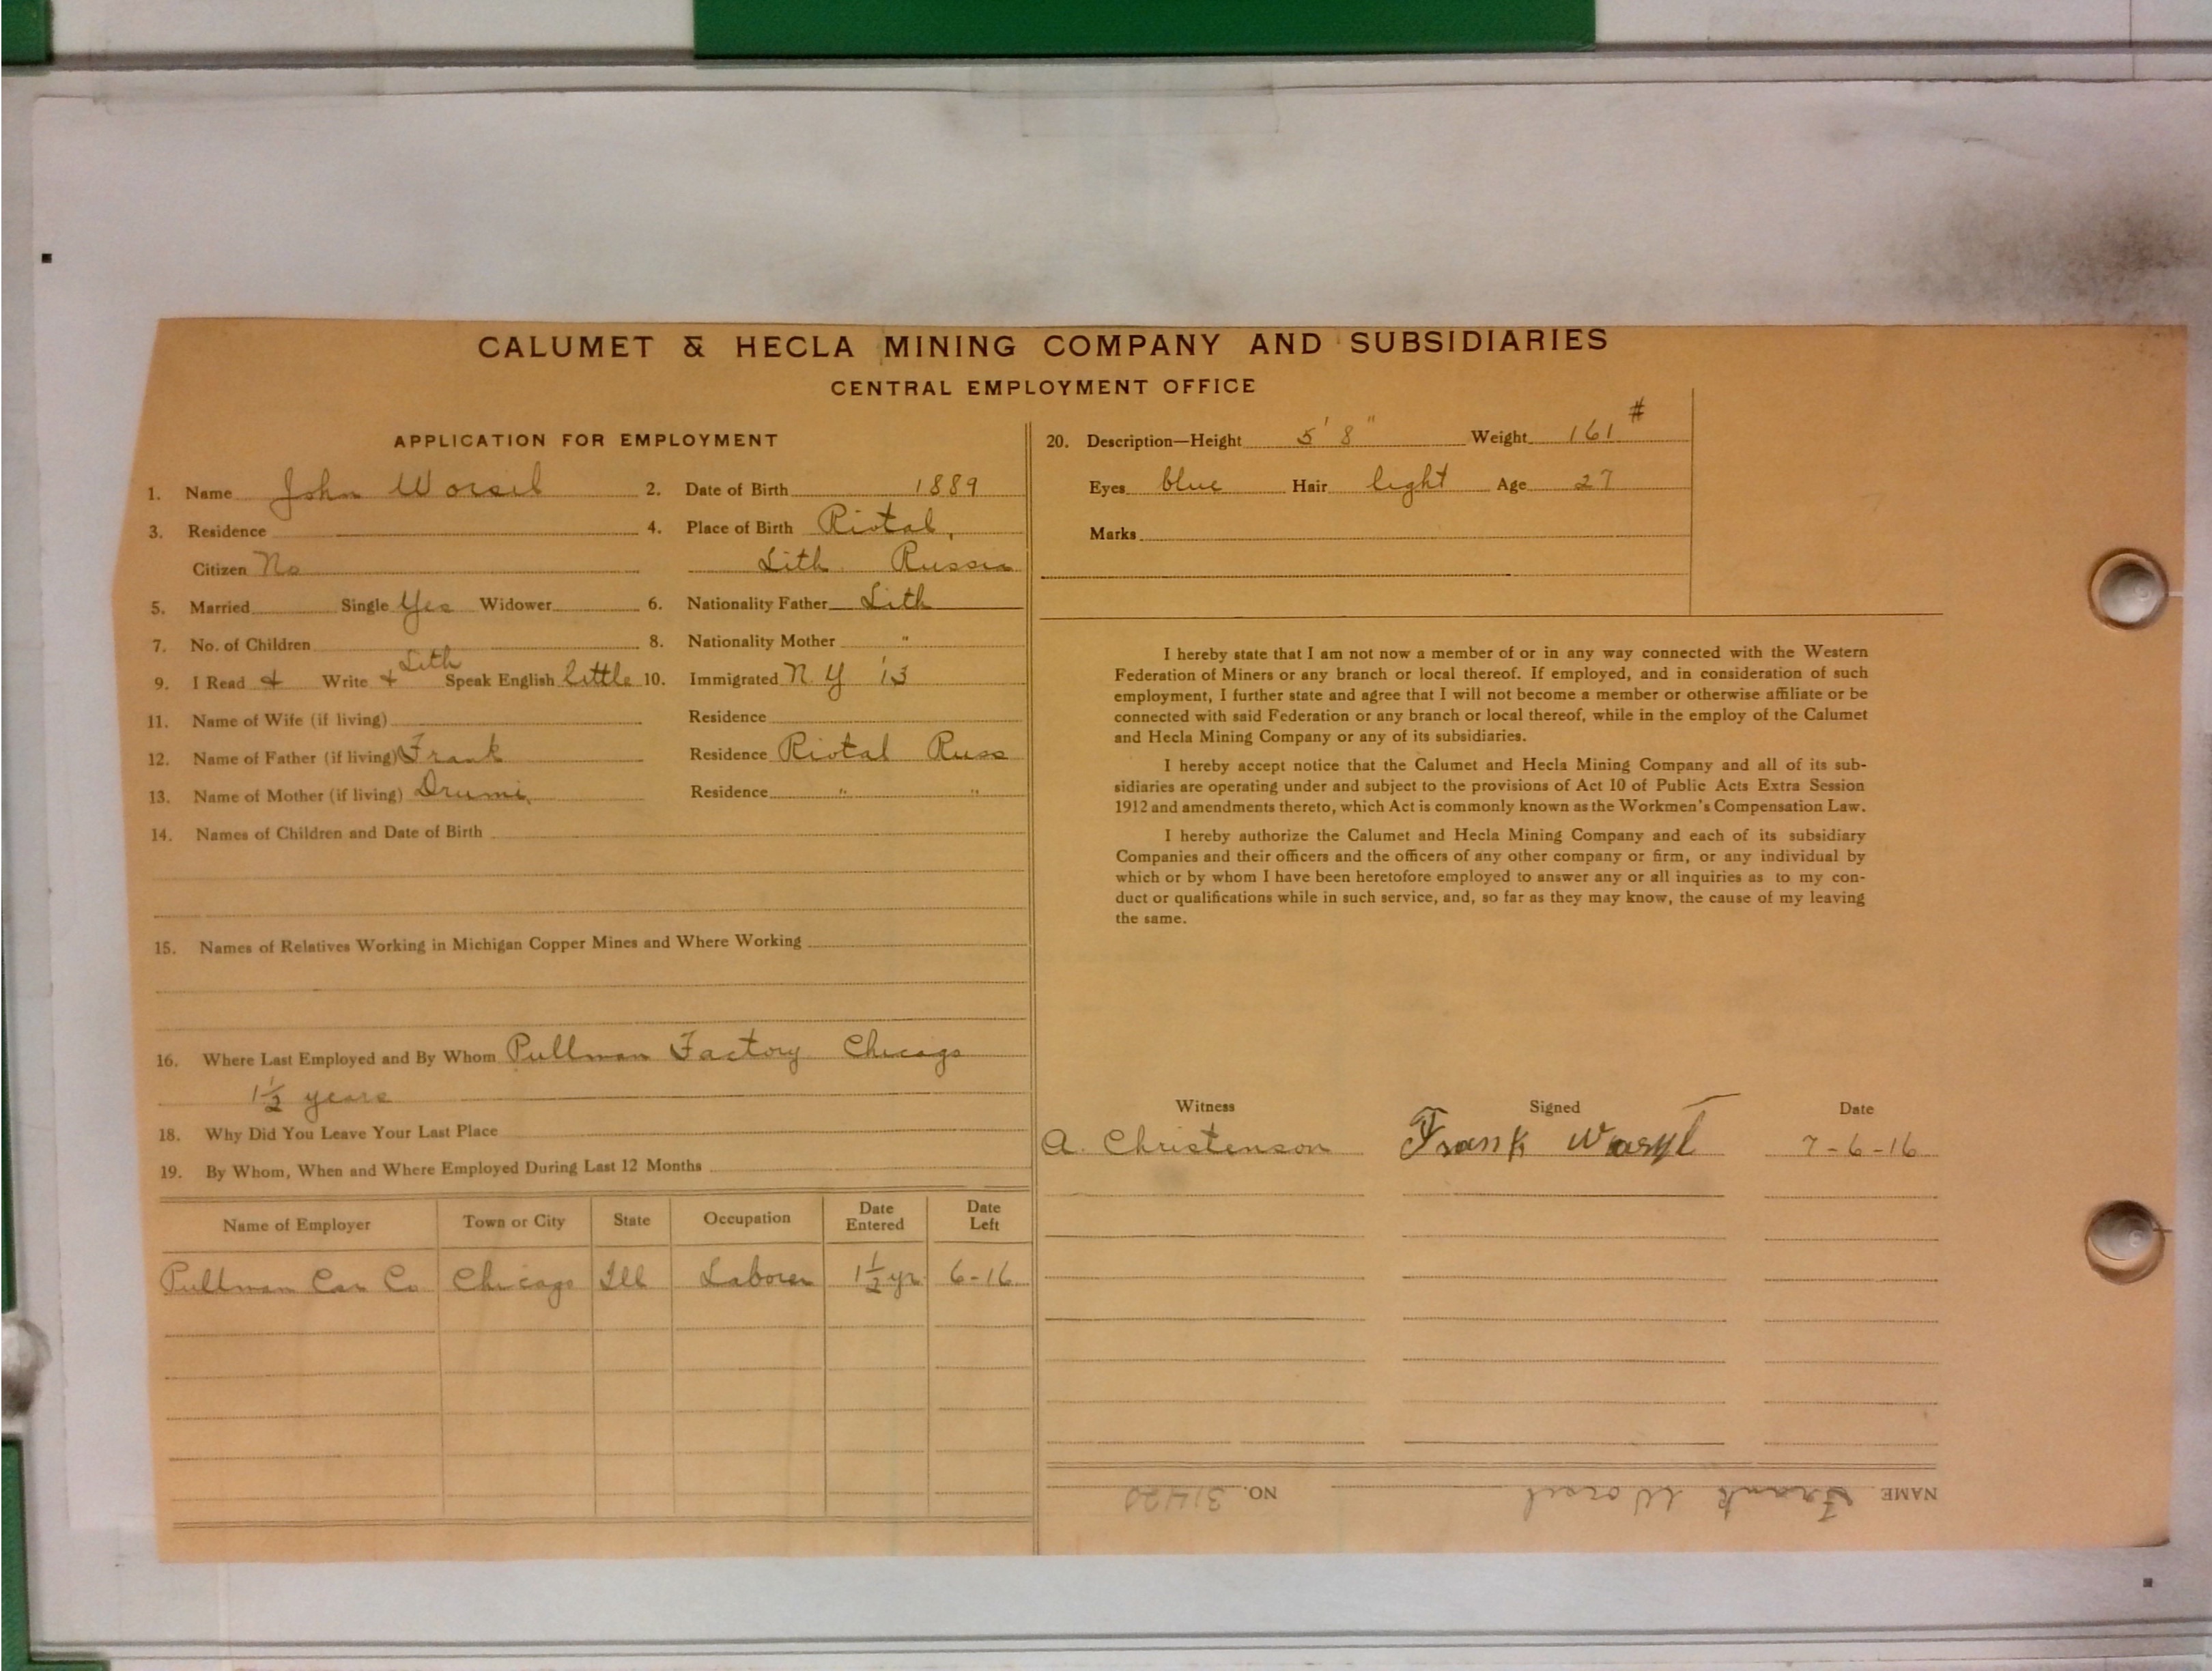 CALUMET & HECLA MINING COMPANY AND SUBSIDIARIES
CENTRAL EMPLOYMENT OFFICE
APPLICATION FOR EMPLOYMENT
1. Name John Worsil 2. Date of Birth 1889
3. Residence 4. Place of Birth Riotal,
Citizen No Lith Russia
5. Married Single Yes Widower 6. Nationality Father Lith
7. No. of Children 8. Nationality Mother "
9. I Read & Write & Lith Speak English little 10. Immigrated N Y '13
11. Name of Wife (if living) Residence
12. Name of Father (if living) Frank Residence Riotal Russ
13. Name of Mother (if living) Drumi Residence " "
14. Names of Children and Date of Birth
15. Names of Relatives Working in Michigan Copper Mines and Where Working
16. Where Last Employed and By Whom Pullman Factory Chicago
1½ years
18. Why Did You Leave Your Last Place
19. By Whom, When and Where Employed During Last 12 Months
Name of Employer Town or City State Occupation Date Entered Date Left
Pullman Car Co Chicago Ill Laborer 1½ yr 6-16
20. Description—Height 5' 8" Weight 161 #
Eyes blue Hair light Age 27
Marks
I hereby state that I am not now a member of or in any way connected with the Western
Federation of Miners or any branch or local thereof. If employed, and in consideration of such
employment, I further state and agree that I will not become a member or otherwise affiliate or be
connected with said Federation or any branch or local thereof, while in the employ of the Calumet
and Hecla Mining Company or any of its subsidiaries.
I hereby accept notice that the Calumet and Hecla Mining Company and all of its sub-
sidiaries are operating under and subject to the provisions of Act 10 of Public Acts Extra Session
1912 and amendments thereto, which Act is commonly known as the Workmen's Compensation Law.
I hereby authorize the Calumet and Hecla Mining Company and each of its subsidiary
Companies and their officers and the officers of any other company or firm, or any individual by
which or by whom I have been heretofore employed to answer any or all inquiries as to my con-
duct or qualifications while in such service, and, so far as they may know, the cause of my leaving
the same.
Witness Signed Date
A. Christenson Frank Wasyl 7-6-16
NAME Frank Worsil NO. 31420